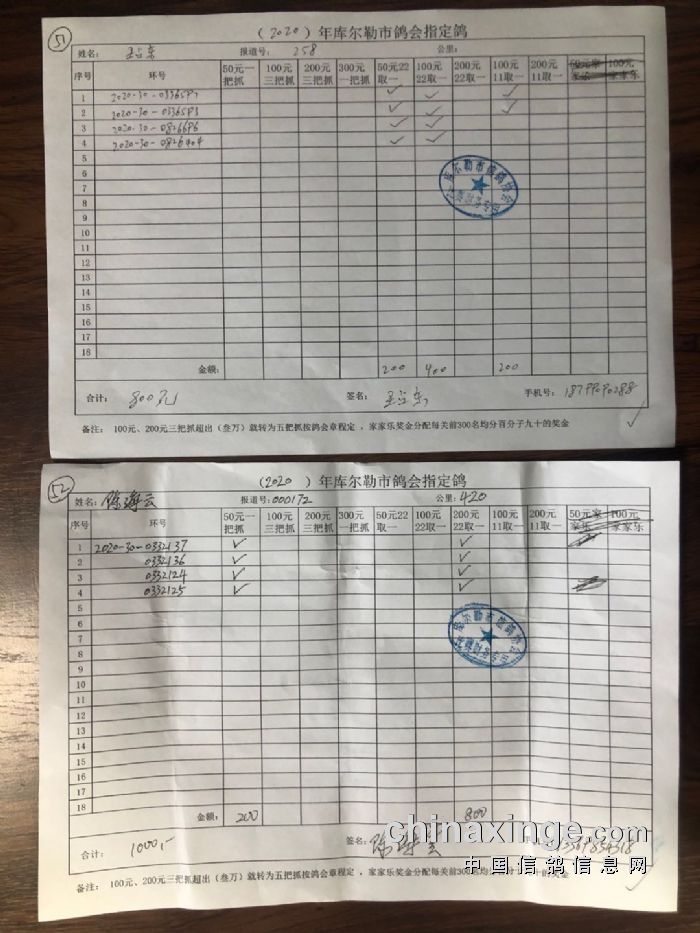 51
（2020）年库尔勒市鸽会指定鸽
姓名： 报道号： 258 公里：
序号 环号 50元一把抓 100元三把抓 200元三把抓 300元一把抓 50元22取一 100元22取一 200元22取一 100元11取一 200元11取一 50元家家乐 100元家家乐
1 2020-30-0336597 ✓ ✓ ✓
2 2020-30-0336593 ✓ ✓ ✓
3 2020-30-0826696 ✓ ✓
4 2020-30-0826404 ✓ ✓
5
6
7
8
9
10
11
12
13
14
15
16
17
18
金额： 200 400 200
合计： 800元 签名： 手机号： 18799090288
备注： 100元、200元三把抓超出（叁万）就转为五把抓按鸽会章程定，家家乐奖金分配每关前300名均分百分子九十的奖金
52
（2020）年库尔勒市鸽会指定鸽
姓名： 陈海云 报道号： 000172 公里： 420
序号 环号 50元一把抓 100元三把抓 200元三把抓 300元一把抓 50元22取一 100元22取一 200元22取一 100元11取一 200元11取一 50元家家乐 100元家家乐
1 2020-30-0332137 ✓ ✓
2 0332136 ✓ ✓
3 0332124 ✓ ✓
4 0332125 ✓ ✓
5
6
7
8
9
10
11
12
13
14
15
16
17
18
金额： 200 800
合计： 1000,- 签名： 陈海云
备注： 100元、200元三把抓超出（叁万）就转为五把抓按鸽会章程定，家家乐奖金分配每关前300名均分百分子九十的奖金
chinaxinge.com
中国信鸽信息网